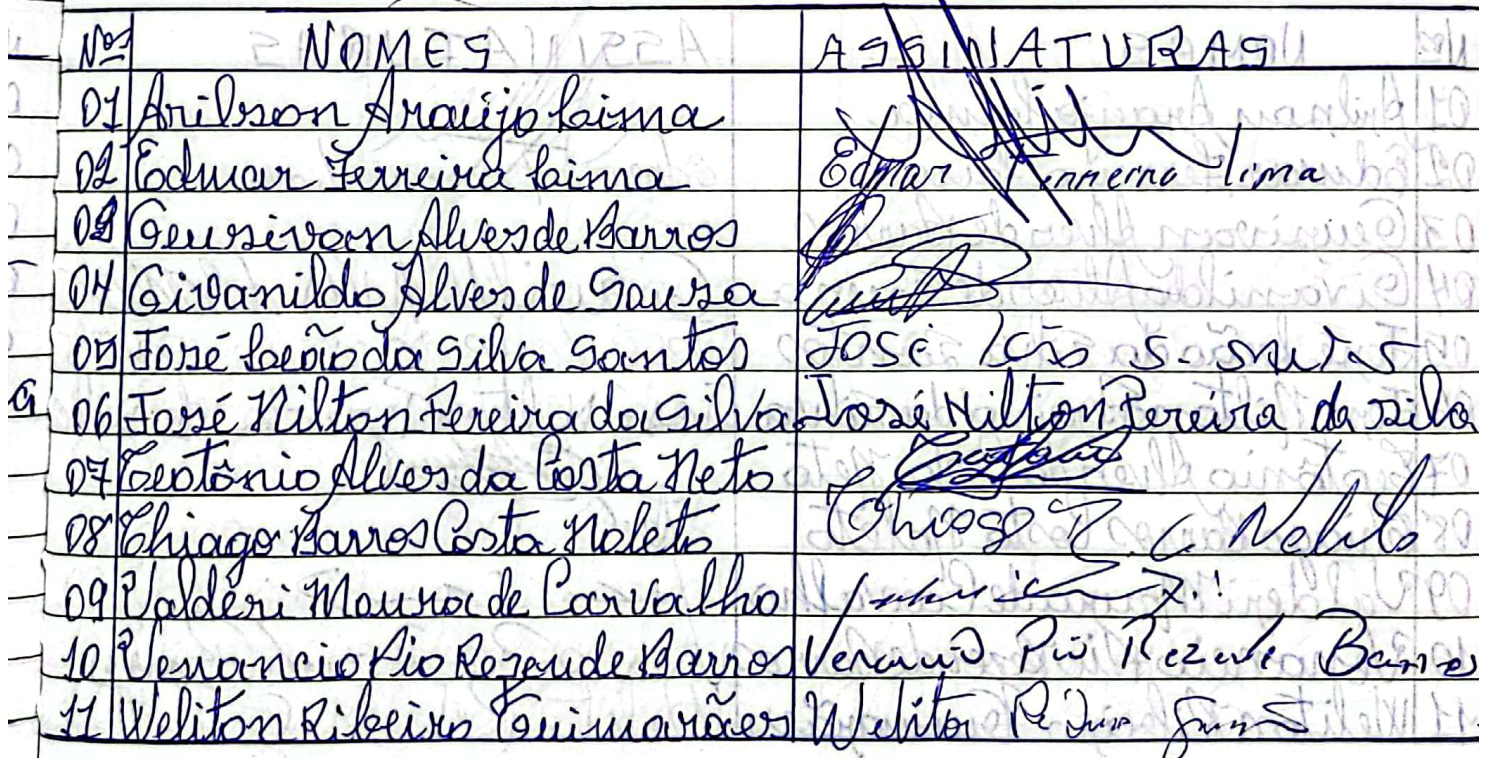 Nºs NOMES ASSINATURAS
01 Arilson Araújo Lima
02 Edmar Ferreira Lima Edmar Ferrerra lima
03 Geusivan Alves de Barros
04 Givanildo Alves de Sousa
05 José Leão da Silva Santos José leão S.
06 José Nilton Pereira da Silva José Nilton Pereira da Silva
07 Teotônio Alves da Costa Neto
08 Thiago Barros Costa Noleto Thiago B. C. Noleto
09 Valdéri Moura de Carvalho
10 Venancio Pio Rezende Barros Venancio Pio Rezende Barros
11 Weliton Ribeiro Guimarães Weliton